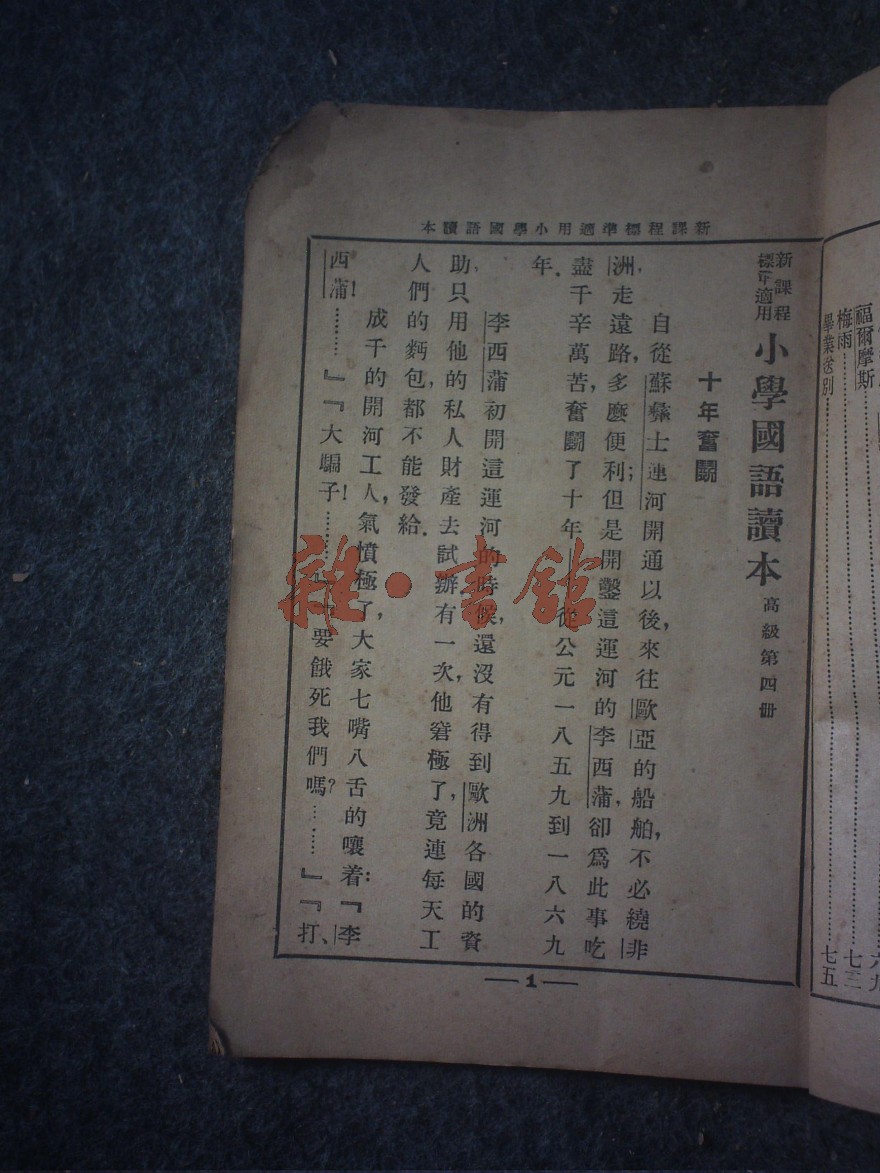 本讀語國學小用適準標程課新
新課程
標準適用
小學國語讀本
高級第四冊
十年奮鬬
自從蘇彝士運河開通以後,來往歐亞的船舶,不必繞非
洲,走遠路,多麼便利;但是開鑿這運河的李西蒲,卻爲此事吃
盡千辛萬苦,奮鬬了十年——從公元一八五九到一八六九
年.
李西蒲初開這運河的時候,還沒有得到歐洲各國的資
助,只用他的私人財產去試辦.有一次,他窘極了,竟連每天工
人們的麪包,都不能發給.
成千的開河工人,氣憤極了,大家七嘴八舌的嚷着:『李
西蒲!………』『大騙子!………』『要餓死我們嗎?………』『打、
—1—
福爾摩斯
六九
梅雨
七三
畢業送別
七五
雜·書館